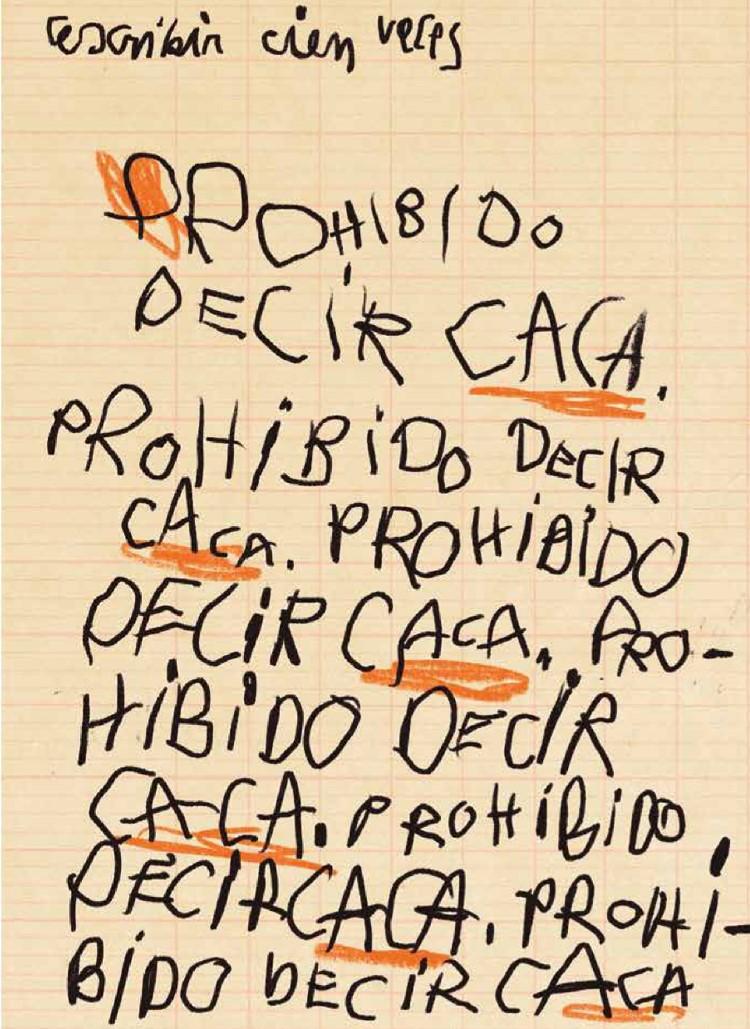 escribir cien veces
PROHIBIDO
DECIR CACA.
PROHIBIDO DECIR
CACA. PROHIBIDO
DECIR CACA. PRO-
HIBIDO DECIR
CACA. PROHIBIDO
DECIR CACA. PROHI-
BIDO DECIR CACA